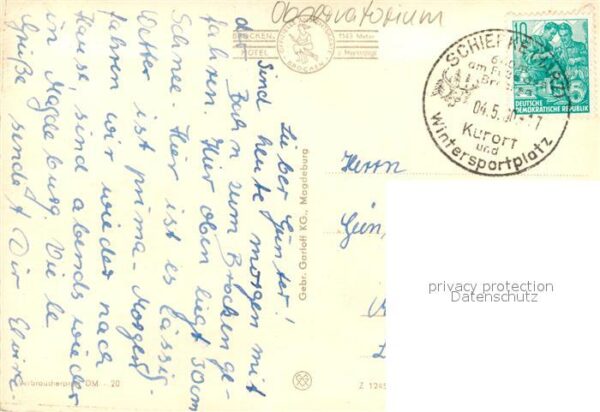 Observatorium
BROCKEN, 1142 Meter
HOTEL
SCHIERKE
am Fuße
04.5.
Kurort
und
Wintersportplatz
10
5
DEUTSCHE
DEMOKRATISCHE REPUBLIK
Lieber Günter!
Sind heute morgen mit
der Bahn zum Brocken ge-
fahren. Hier oben liegt 30cm
Schnee. Hier ist es lässig.
Wetter ist prima. Morgen
fahren wir wieder nach
Hause, sind abends wieder
in Magdeburg. Viele
Grüße sendet Dir Elvira.
Herrn
Gün
Gebr. Garloff KG., Magdeburg
privacy protection
Datenschutz
Verbraucherpreis DM -.20
Z 1245